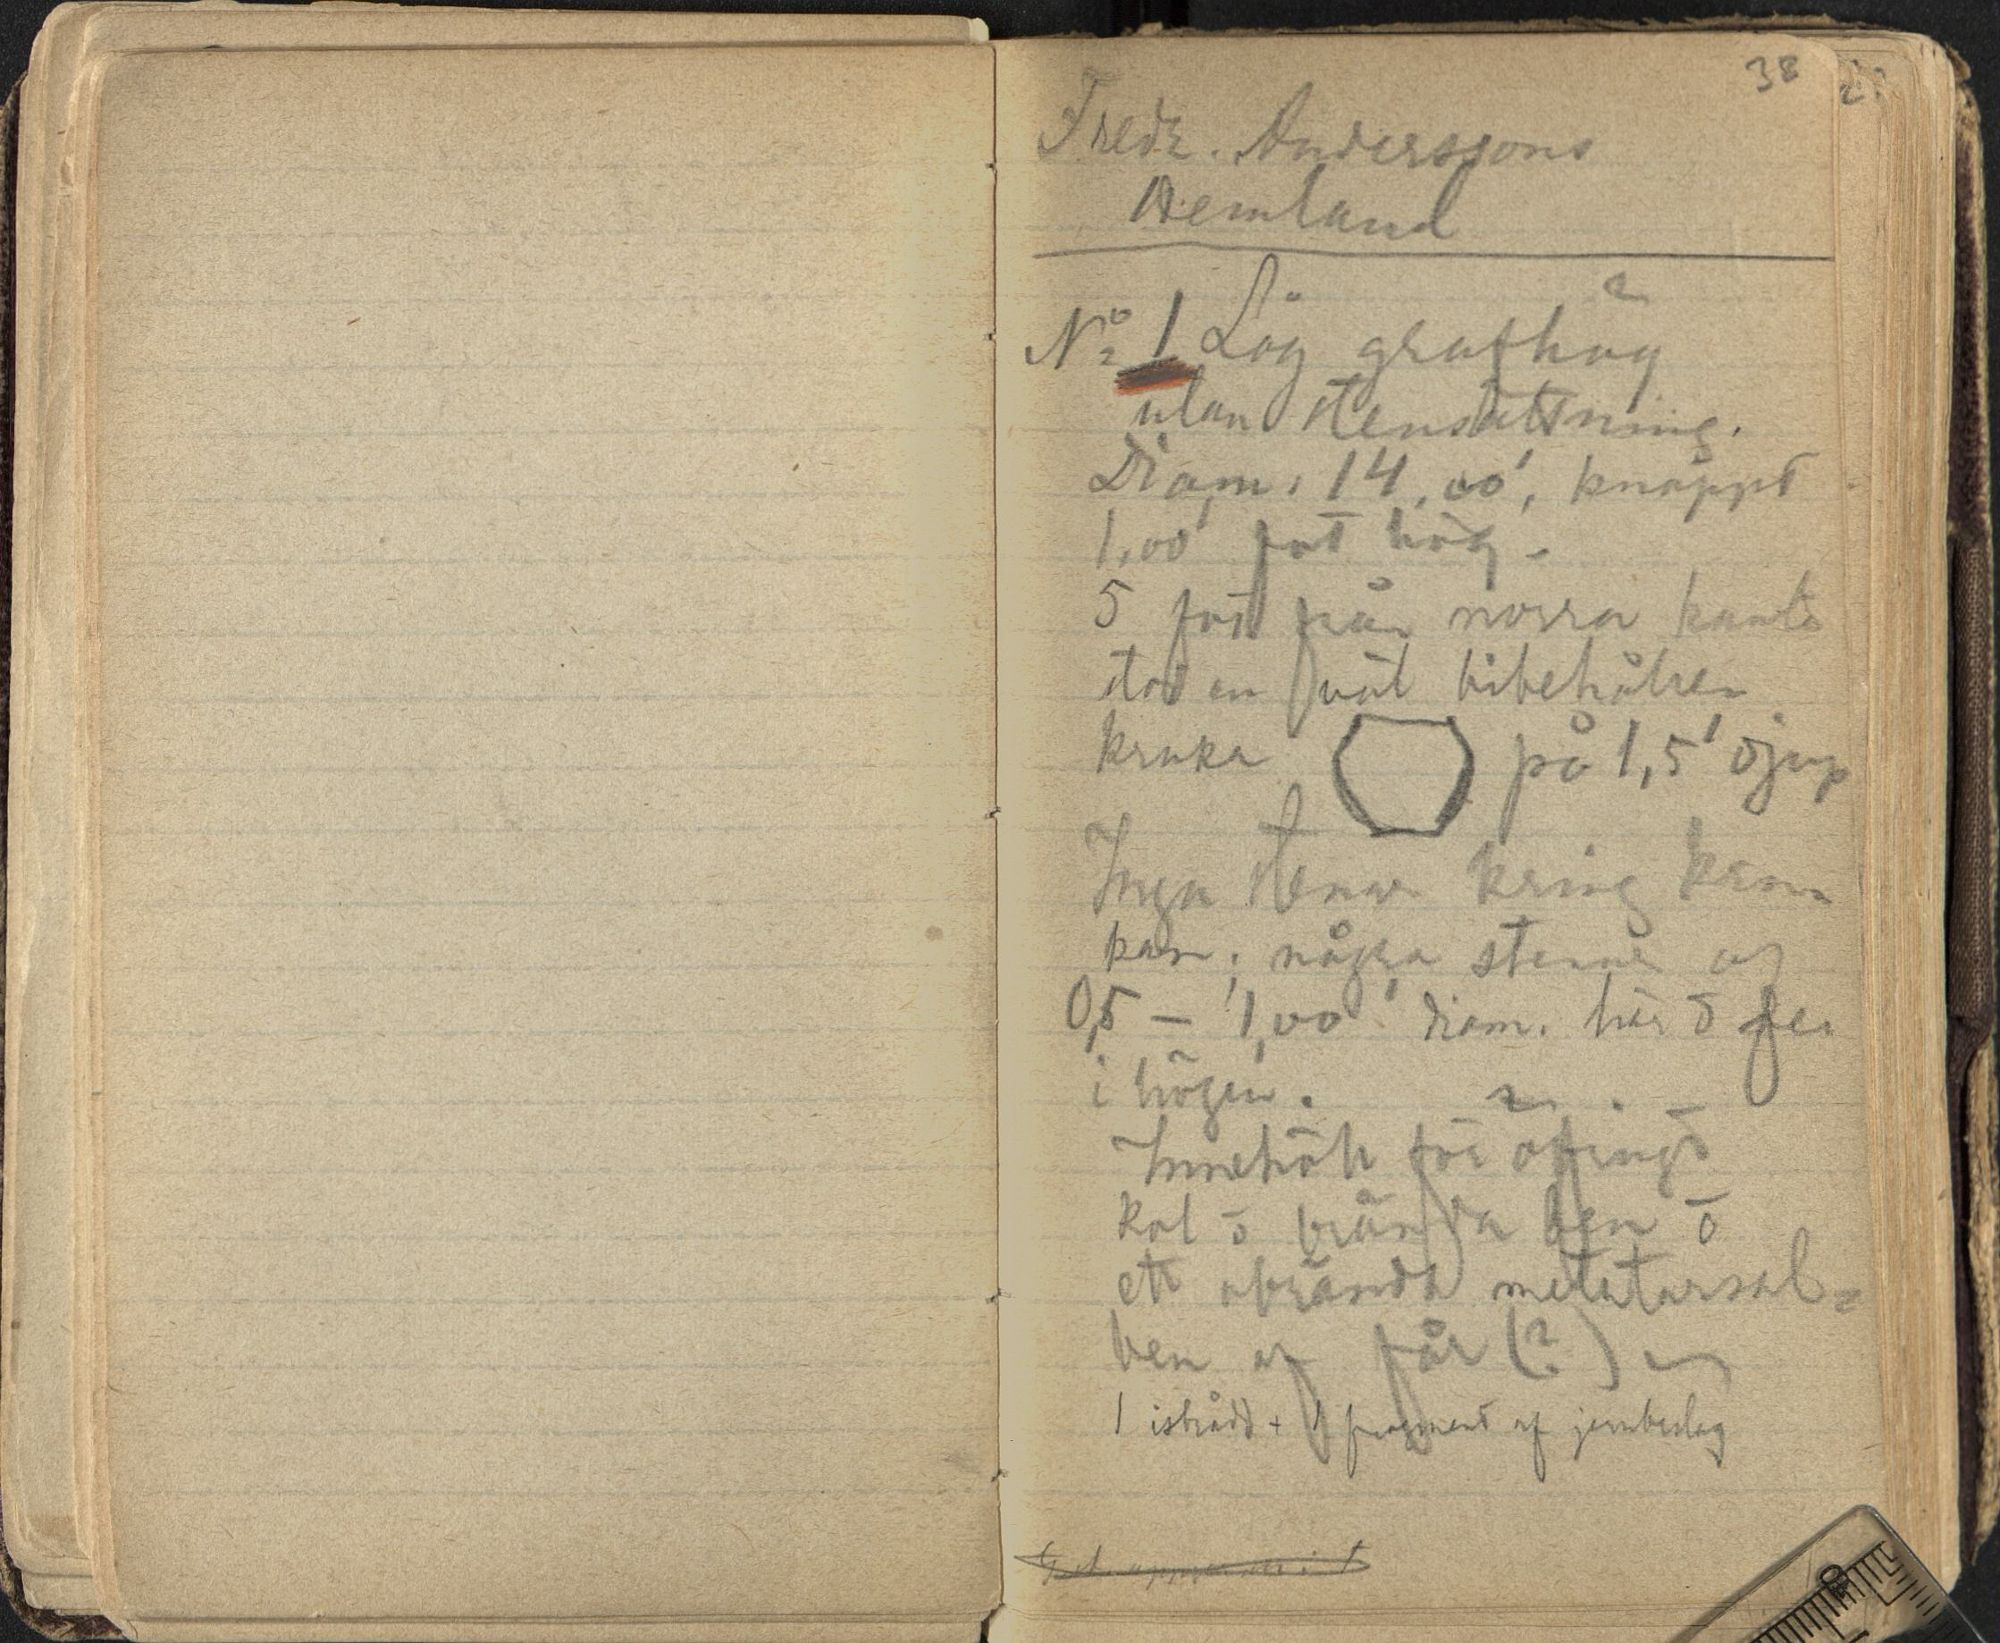 38
Fredr. Anderssons
Hemland
No 1 Låg grafhög
utan stensättning.
Diam. 14,00', knappt
1,00' fot hög.
5 fot från norra kanten
stod en väl bibehållen
kruka på 1,5' djup
Inga stenar kring kru-
kan; några stenar af
0,5 – 1,00' diam. här o der
i högen.
Innehöll för öfrigt
kol o brända ben o
ett obrändt metatarsal-
ben af får (?)
1 isbrådd + 1 fragment af jernbeslag